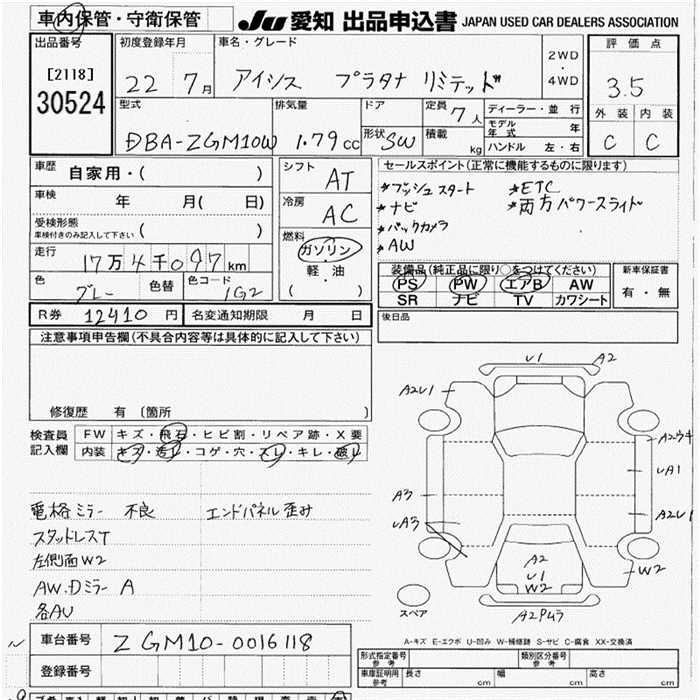 車内保管・守衛保管
JU 愛知 出品申込書 JAPAN USED CAR DEALERS ASSOCIATION
出品番号
[2118]
30524
初度登録年月
22 7月
車名・グレード
アイシス プラタナ リミテッド
2WD
・
4WD
評価点
3.5
外装 内装
C C
型式
DBA-ZGM10W
排気量
1.79cc
ドア
形状 SW
定員 7人
積載 kg
ディーラー・並行
モデル年式 年
ハンドル 左・右
車歴
自家用・( )
車検
年 月( 日)
受検形態
車検付きのみ記入して下さい ( )
走行
17万4千097km
色
グレー
色替
色コード
1G2
シフト
AT
冷房
AC
燃料
ガソリン
・
軽油
( )
セールスポイント(正常に機能するものに限ります)
*プッシュスタート *ETC
*ナビ *両方パワースライド
*バックカメラ
*AW
装備品(純正品に限り○をつけてください)
PS PW エアB AW
SR ナビ TV カワシート
新車保証書
有・無
R券 12410円 名変通知期限 月 日
後日品
注意事項申告欄(不具合内容等は具体的に記入して下さい)
修復歴 有 〔箇所 〕
検査員記入欄
FW キズ・飛石・ヒビ割・リペア跡・X要
内装 キズ・汚レ・コゲ・穴・スレ・キレ・破レ
電格ミラー 不良 エンドパネル歪み
スタッドレスT
左側面W2
AW.Dミラー A
各AU
U1 A2
A2U1
A2ウキ
UA1
A3
UA3
A2U1
W2
A2
U1
W2
スペア
A-キズ E-エクボ U-凹み W-補修跡 S-サビ C-腐食 XX-交換済
車台番号 ZGM10-0016118
登録番号
形式指定番号
参考
類別区分番号
参考
車庫証明用
参考
長さ cm 幅 cm 高さ cm